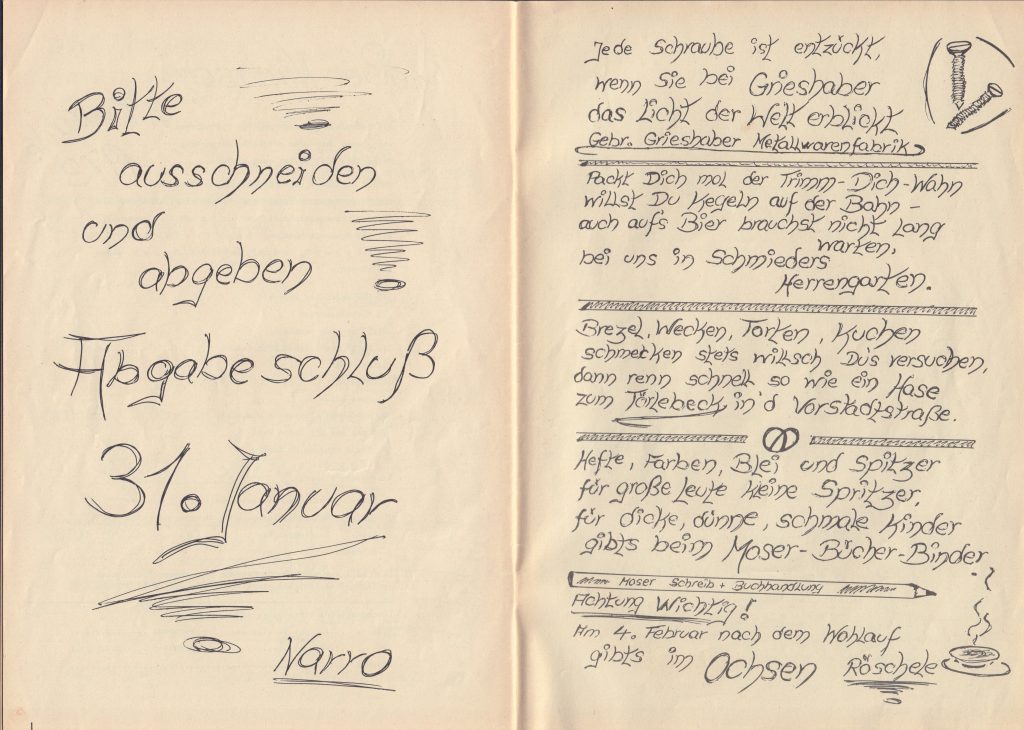 Bitte
ausschneiden
und
abgeben
Abgabeschluß
31. Januar
Narro
Jede Schraube ist entzückt,
wenn Sie bei Grieshaber
das Licht der Welt erblickt
Gebr. Grieshaber Metallwarenfabrik
Packt Dich mol der Trimm-Dich-Wahn
willst Du Kegeln auf der Bahn -
auch aufs Bier brauchst nicht lang
warten,
bei uns in Schmieders
Herrengarten.
Brezel, Wecken, Torten, Kuchen
schmecken stets willsch Dus versuchen,
dann renn schnell so wie ein Hase
zum Törlebeck, in'd Vorstadtstraße.
Hefte, Farben, Blei und Spitzer
für große Leute kleine Spritzer,
für dicke, dünne, schmale Kinder
gibts beim Moser-Bücher-Binder
Moser Schreib + Buchhandlung
Achtung Wichtig!
Am 4. Februar nach dem Wohlauf
gibts im Ochsen Röschele